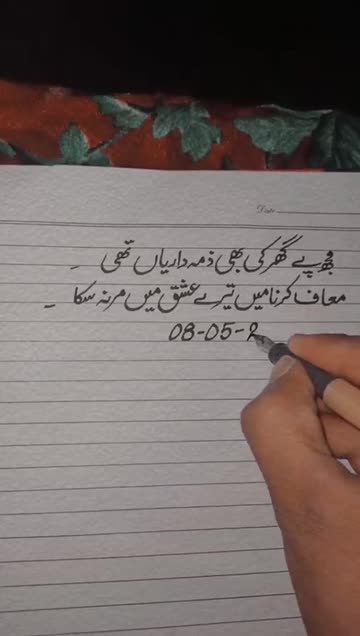 Date
مجھ پے گھر کی بھی ذمہ داریاں تھی ۔
معاف کرنا میں تیرے عشق میں مر نہ سکا ۔
08-05-2